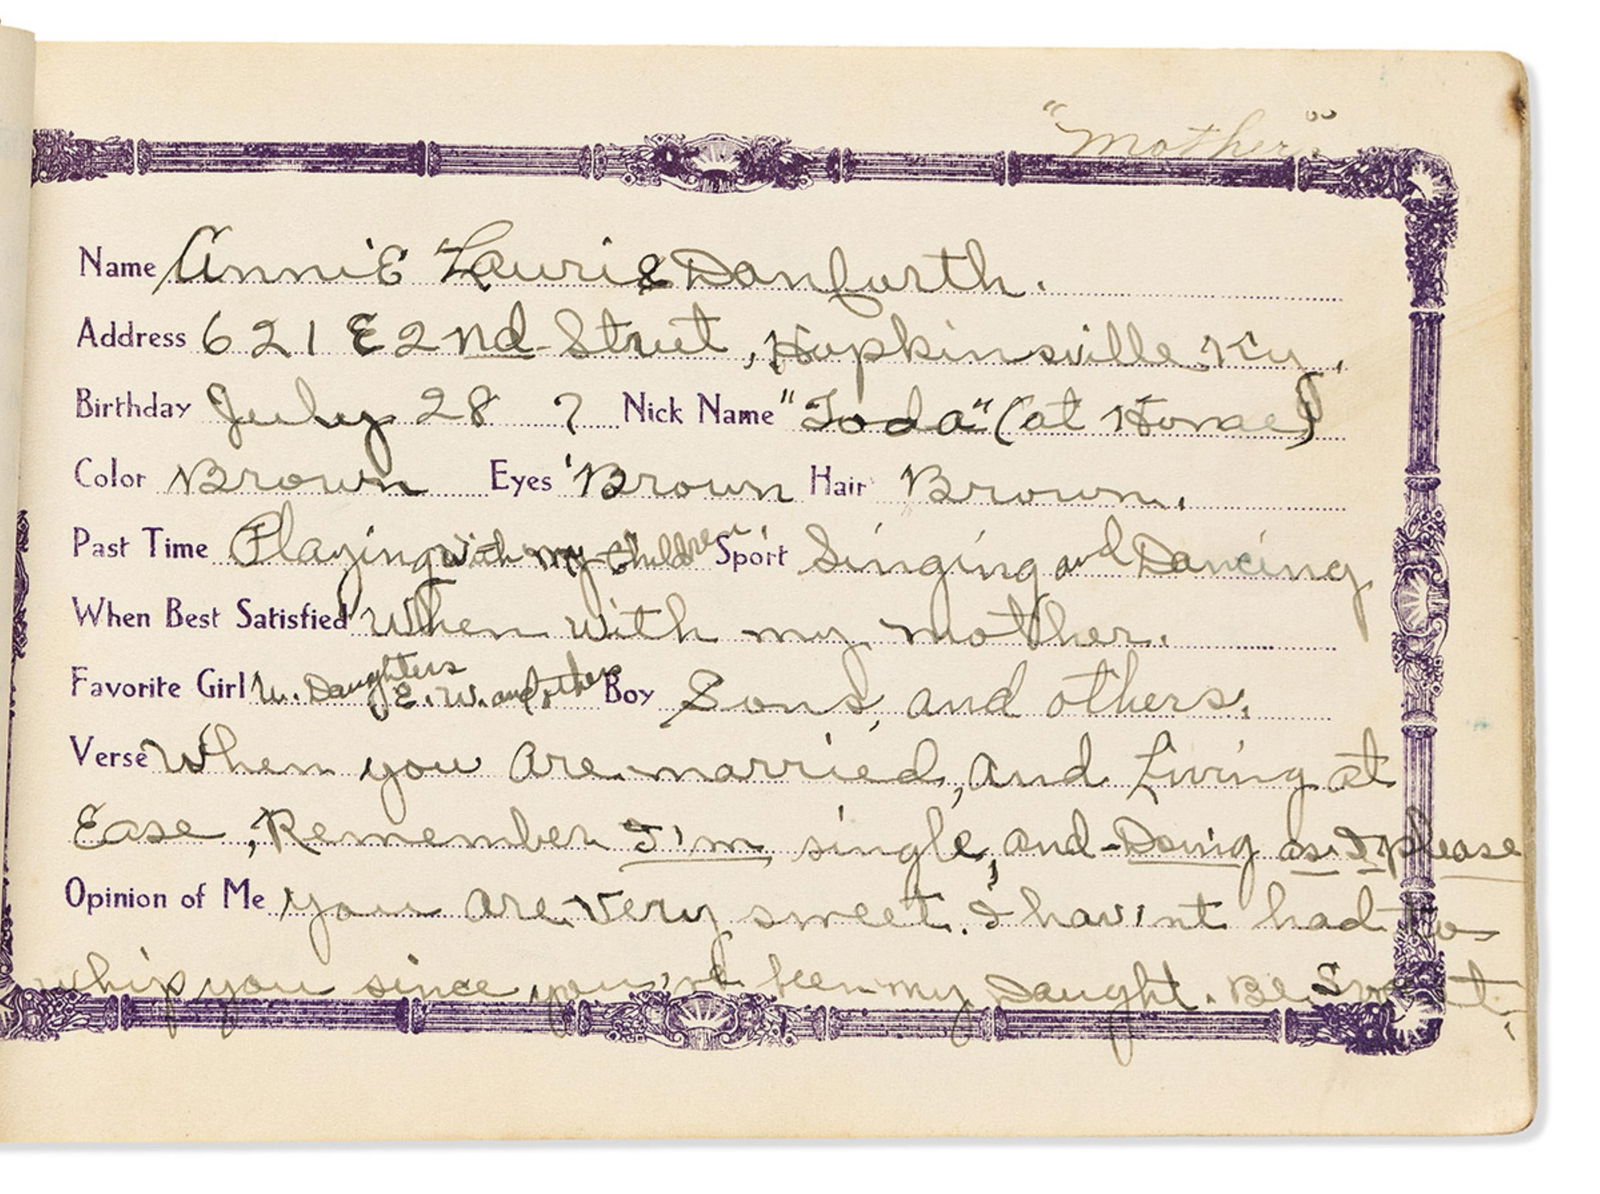 "Mother"
Name Annie Laurie Danforth.
Address 621 E 2nd Street, Hopkinsville, Ky.
Birthday July 28 ? Nick Name "Toda" (at Home)
Color Brown Eyes Brown Hair Brown.
Past Time Playing with my children. Sport Singing and Dancing
When Best Satisfied When with my mother.
Favorite Girl Daughters E. W. and other Boy Sons, and others.
Verse When you are married, and Living at
Ease, Remember I'm single, and Doing as I please
Opinion of Me you are very sweet. I hav'nt had to
whip you since you've been my Daught. Be Sweet.